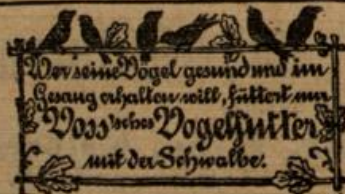 Wer seine Vögel gesund und im
Gesang erhalten will, füttert nur
Voss'sches Vogelfutter
mit der Schwalbe.